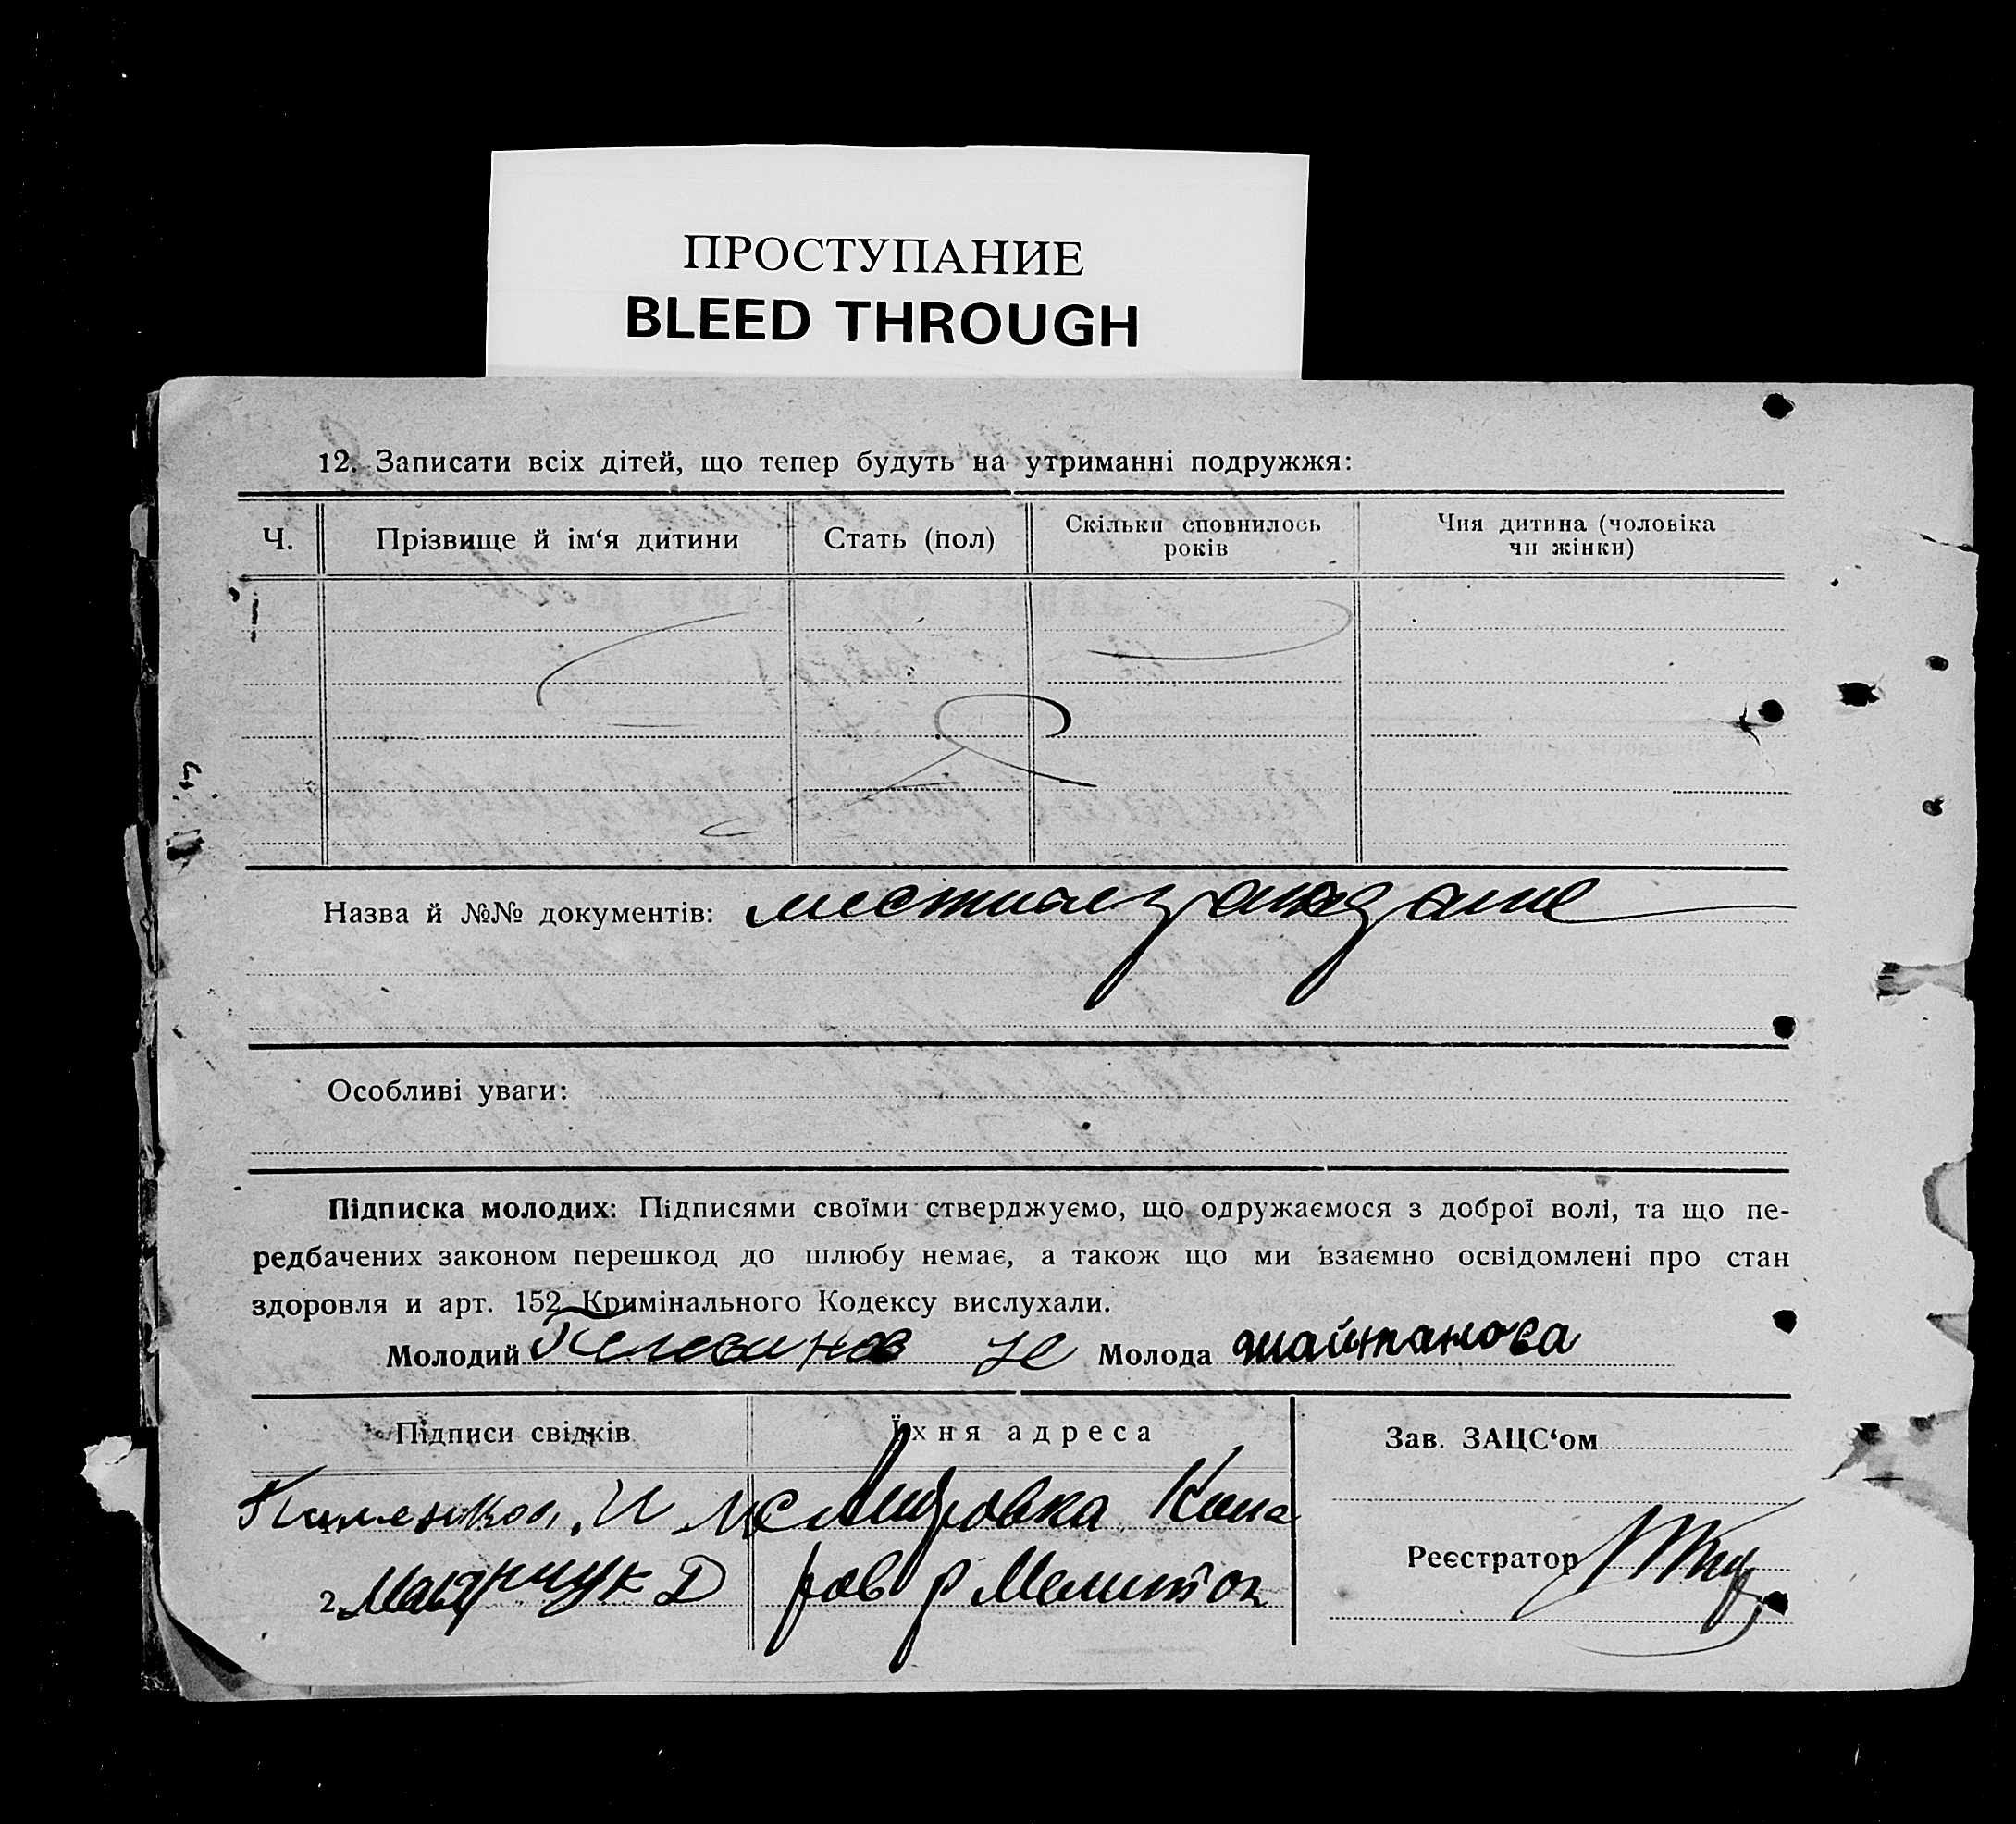 ПРОСТУПАНИЕ
BLEED THROUGH
12. Записати всіх дітей, що тепер будуть на утриманні подружжя:
Ч. Прізвище й ім‘я дитини Стать (пол) Скільки сповнилось років Чия дитина (чоловіка чи жінки)
Назва й №№ документів: местные граждане
Особливі уваги:
Підписка молодих: Підписями своїми стверджуємо, що одружаємося з доброї волі, та що пе-
редбачених законом перешкод до шлюбу немає, а також що ми взаємно освідомлені про стан
здоровля и арт. 152 Кримінального Кодексу вислухали.
Молодий Молода
Підписи свідків Їхня адреса Зав. ЗАЦС‘ом
И
Реєстратор
2. Д